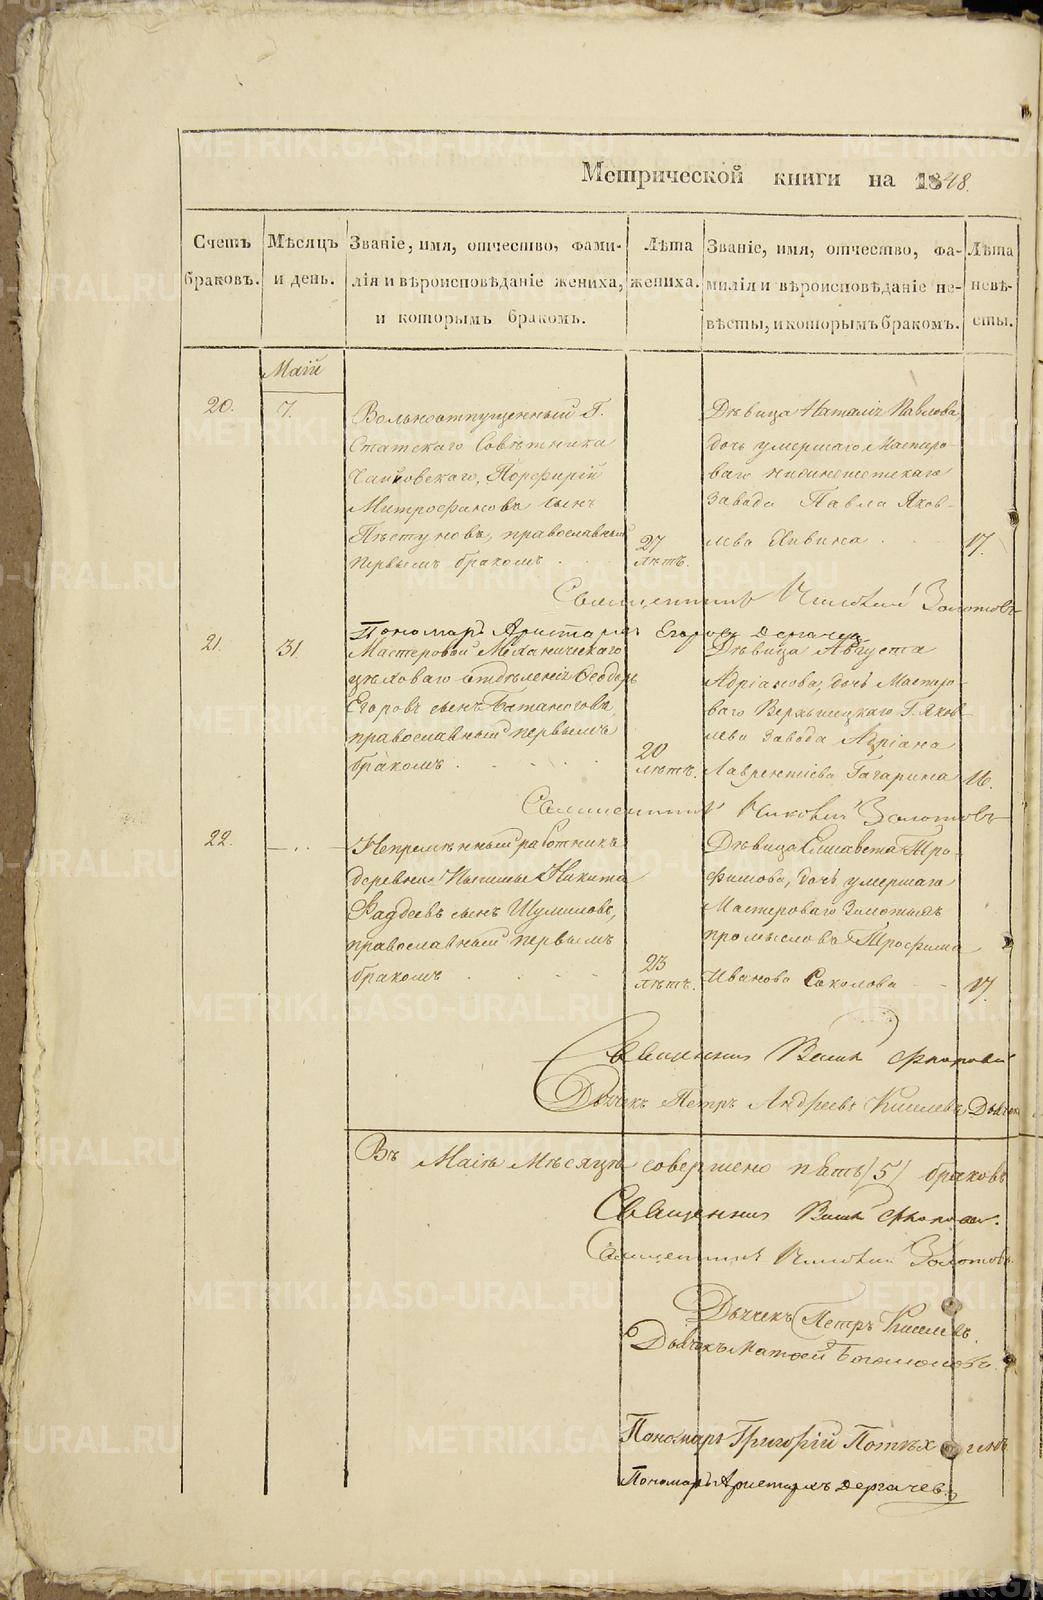 Метрической книги на 1848.
Счетъ браковъ.
Мѣсяцъ и день.
Званіе, имя, отчество, фамилія и вѣроисповѣданіе жениха, и которымъ бракомъ.
Лѣта жениха.
Званіе, имя, отчество, фамилія и вѣроисповѣданіе невѣсты, и которымъ бракомъ.
Лѣта невѣсты.
Маій
20.
7.
Вольноотпущенный Г.
Статскаго Совѣтника
Порфирій
Митрофановъ сынъ
Пѣстуновъ, православный
первымъ бракомъ
27
лѣтъ.
Дѣвица Наталія Павлова,
дочь умершаго Мастеро-
ваго
завода Павла Яков-
лева
17.
Священникъ Золотовъ
Пономарь Аристархъ Егоровъ Дергачевъ
21.
31.
Мастеровой Механическаго
цѣховаго отдѣленія Феодоръ
Егоровъ сынъ
православный первымъ
бракомъ
20
лѣтъ.
Дѣвица Августа
Адріанова, дочь Мастеро-
ваго Верхъисецкаго Г. Яков-
лева завода Адріана
Лаврентіева Гагарина
16.
Священникъ Золотовъ
22.
Непремѣнный работникъ
деревни Пышмы Никита
Фаддеевъ сынъ Шумиловъ,
православный первымъ
бракомъ
23
лѣтъ.
Дѣвица Елисавета Тро-
фимова, дочь умершаго
Мастероваго Золотыхъ
промысловъ Трофима
Иванова Соколова
17.
Священникъ
Дьячекъ Петръ Андреевъ Киселевъ, Дьячек
Въ Маіѣ Мѣсяцѣ совершено пять /5/ браковъ
Священникъ
Священникъ Золотовъ
Дьячекъ Петръ Киселевъ.
Дьячекъ Матфей Богомоловъ.
Пономарь Григорій
Пономарь Аристархъ Дергачевъ
METRIKI.GASO-URAL.RU